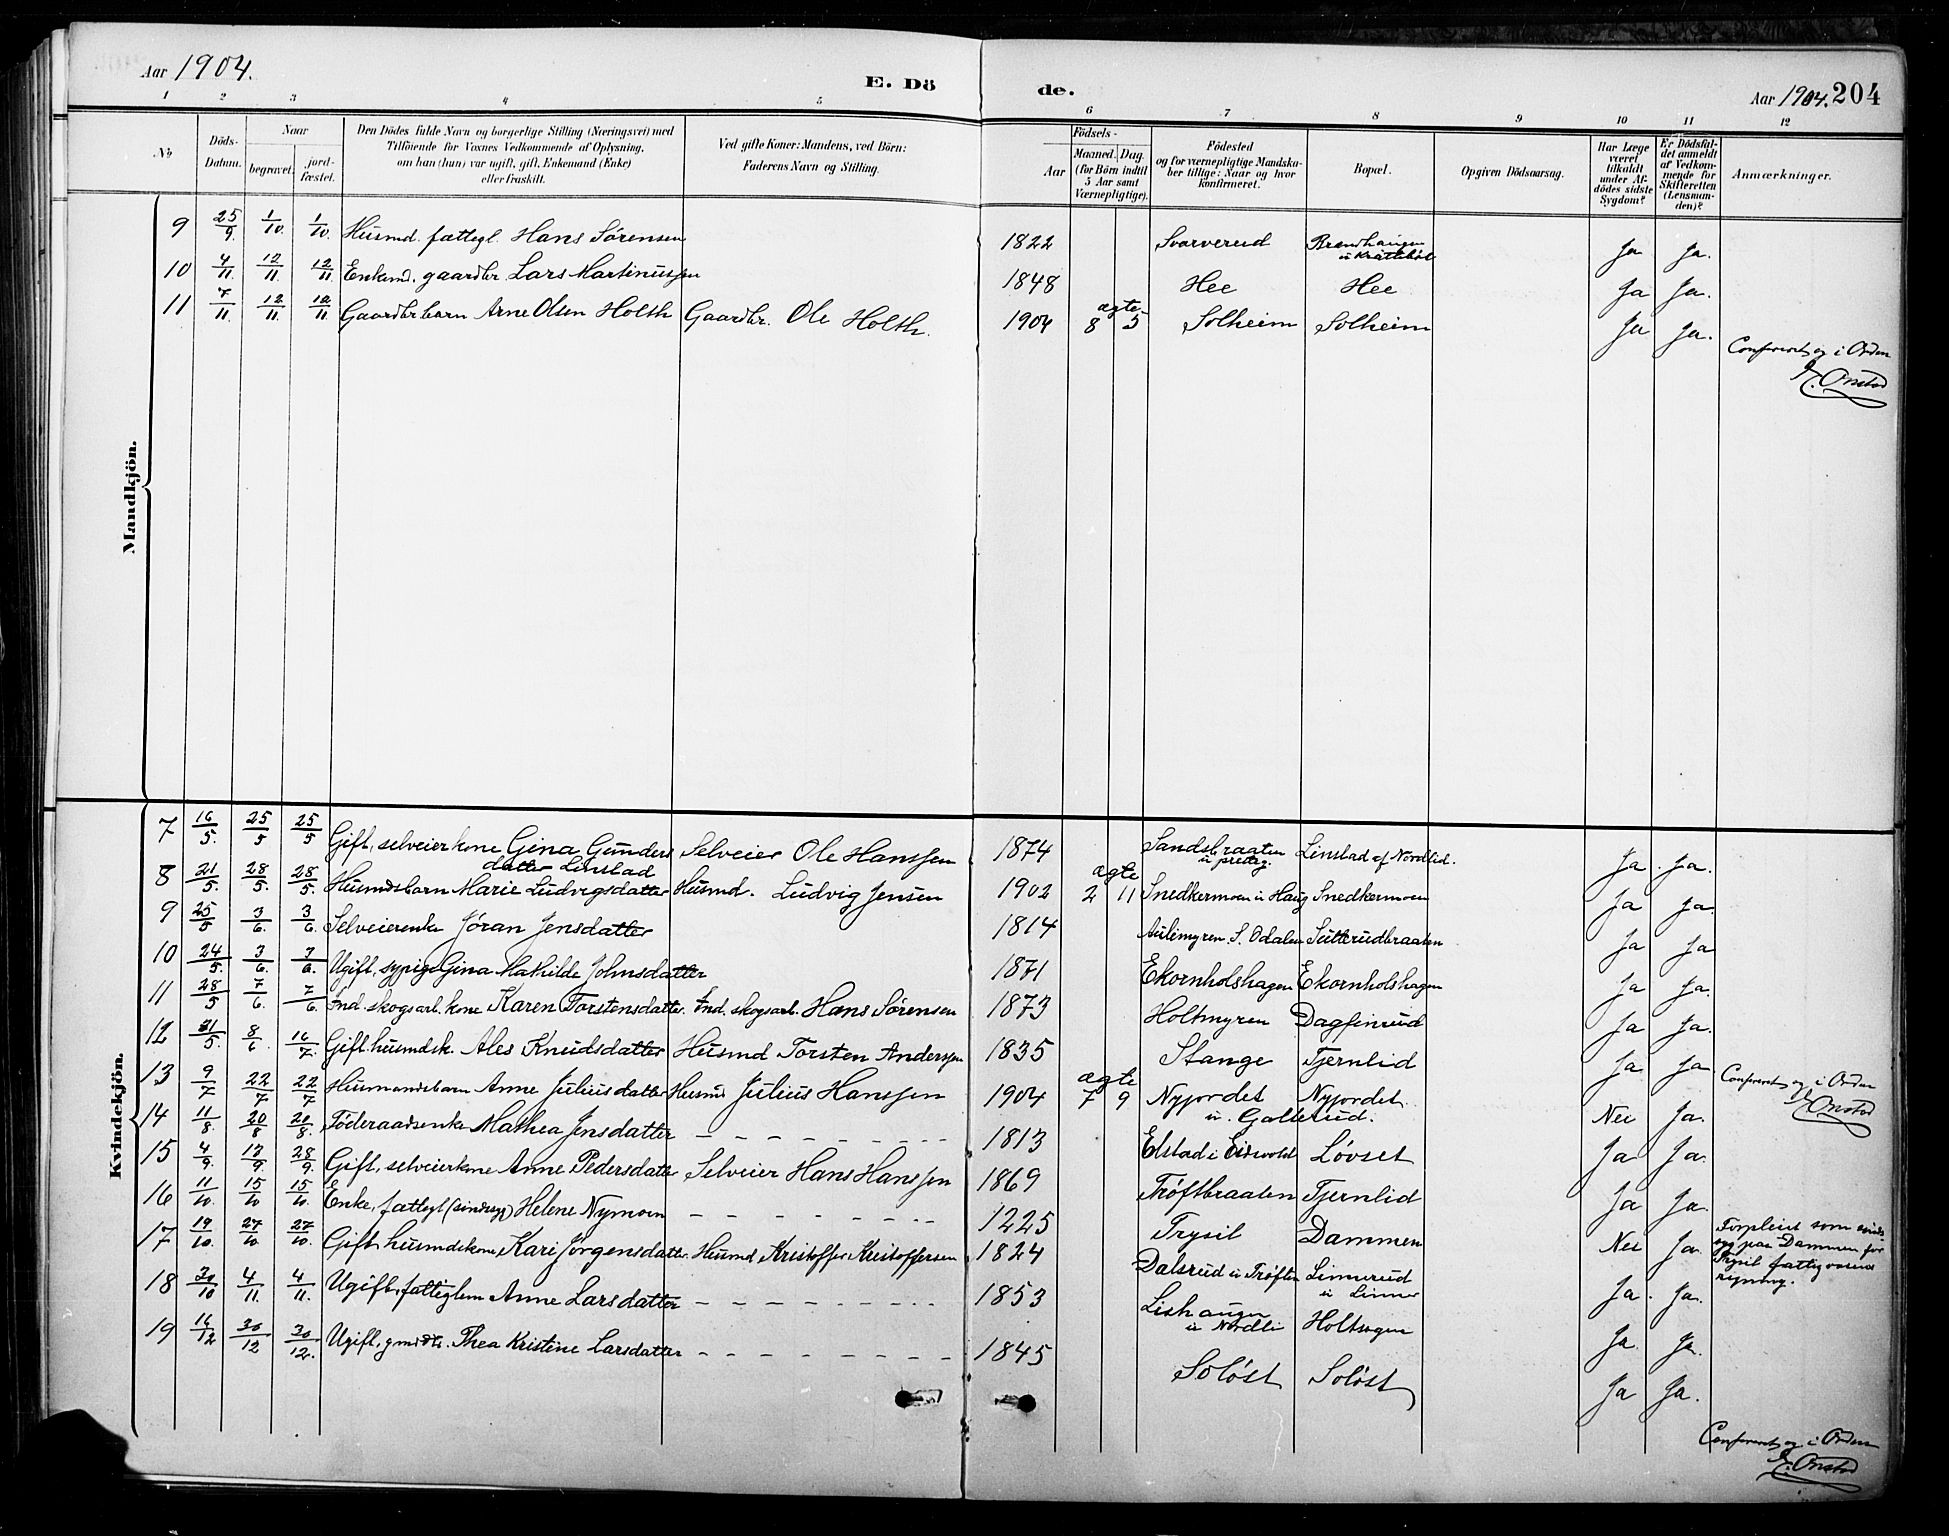 Aar 1904.
E. Dö
de.
Aar 1904. 204
1 2 3 4 5 6 7 8 9 10 11 12
No
Döds-Datum.
Naar
begravet.
jord-fæstet.
Den Dödes fulde Navn og borgerlige Stilling (Næringsvei) med
Tilföiende for Voxnes Vedkommende af Oplysning,
om han (hun) var ugift, gift, Enkemand (Enke)
eller fraskilt.
Ved gifte Koner: Mandens, ved Börn:
Faderens Navn og Stilling.
Födsels-
Aar
Maaned. Dag.
(for Börn indtil
5 Aar samt
Værnepligtige).
Födested
og for værnepligtige Mandska-
ber tillige: Naar og hvor
konfirmeret.
Bopæl.
Opgiven Dödsaarsag.
Har Læge
været
tilkaldt
under Af-
dödes sidste
Sygdom?
Er Dödsfal-
det anmeldt
af Vedkom-
mende for
Skifteretten
(Lensman-
den)?
Anmærkninger.
Mandkjön.
9 25/9. 1/10. 1/10. Husmd. fattegl. Hans Sørensen 1822 Svarverud Brændhaugen Ja Ja.
10 4/11. 12/11 12/11 Enkemd. gaardbr Lars Martinussen 1848 Hee Hee Ja Ja.
11 7/11. 12/11. 12/11 Gaardbrbarn Arne Olsen Holth Gaardbr. Ole Holth. 1904 ægte 8 5 Solheim Solheim Ja Ja.
Confereret og i Orden
Onstad
Kvindekjön.
7 16/5. 25/5 25/5 Gift, selveierkone Gina Gunders Selveier Ole Hanssen 1874 Sandsbraaten Linstad af Nordlid. Ja. Ja.
datter Linstad
8 21/5. 28/5. 28/5. Husmdsbarn Marie Ludvigsdatter Husmd. Ludvig Jensen 1902 ægte 2 11 Snedkermoen u Haug Snedkermoen Ja Ja.
9 25/5 3/6. 3/6. Selveierenke Jøran Jensdatter 1814 Aulimyren S. Odalen Sutterudbraaten Ja Ja
10 24/5. 3/6. 3/6. Ugift, sypige Gina Mathilde Johnsdatter 1871 Ekornholshagen Ekornholshagen Ja Ja.
11 28/5 7/6. 7/6 Ind. skogsarb. kone Karen Torstensdatter Ind. skogsarb. Hans Sørensen 1873 Holtmyren Dagfinrud Ja Ja.
12 31/5. 8/6 16/7. Gift. husmdsk. Ales Knudsdatter Husmd Torsten Anderssen 1835 Stange Tjernlid Ja Ja
13 9/7 22/7 22/7 Husmandsbarn Anne Juliusdatter Husmd Julius Hanssen 1904 ægte 7 9 Nyjordet Nyjordet. Nei Ja.
u. Galterud.
Confereret og i Orden
Onstad
14 11/8. 20/8 20/8. Føderaadsenke Mathea Jensdatter – – – – – – 1813 Elstad i Eidsvold Løvset Ja Ja.
15 4/9. 12/9. 28/9. Gift, selveierkone Anne Pedersdatter Selveier Hans Hanssen 1869 Trøftbraaten Tjernlid Ja Ja.
16 11/10. 15/10 15/10. Enke, fattegl (sindssyg) Helene Nymoen – – – – – – 1225 Trysil Dammen Nei Ja.
Forpleiet som sinds
syg paa Dammen for
Trysil fattigvæsens
regning.
17 19/10. 27/10 27/10. Gift husmdskone, Kari Jørgensdatter Husmd Kristoffer Kristoffersen 1824 Dalsrud u Trøften Linnerud Ja. Ja.
u Linner
18 30/10 4/11. 4/11. Ugift, fatteglem Anne Larsdatter – – – – – – 1853 Lishaugen Holthagen Ja. Ja.
u Nordli
19 16/12 30/12 30/12. Ugift, Thea Kristine Larsdatter – – – – – – 1845 Soløst Soløst Ja Ja.
Confereret og i Orden
Onstad